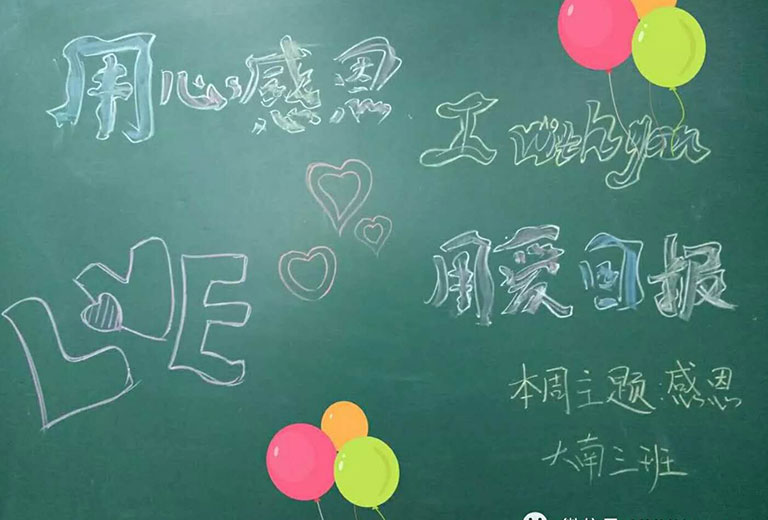 用心感恩
I wish you
用爱回报
LOVE
本周主题:感恩
大南三班